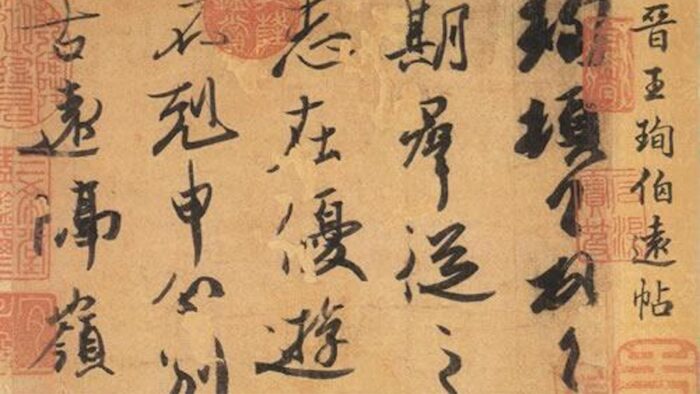 晉王珣伯遠帖
珣頓首頓首
期群從之
志在優遊
不剋申分別
古遠隔嶺